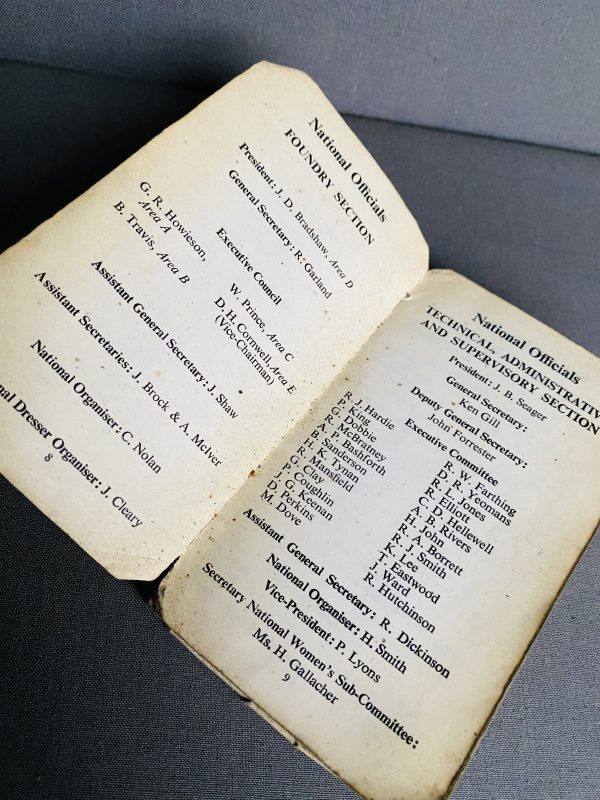 National Officials
FOUNDRY SECTION
President: J. D. Bradshaw, Area D
General Secretary: R. Garland
Executive Council
G. R. Howieson,
Area A
B. Travis, Area B
W. Prince, Area C
D. H. Cornwell, Area E
(Vice-Chairman)
Assistant General Secretary: J. Shaw
Assistant Secretaries: J. Brock & A. McIver
National Organiser: C. Nolan
nal Dresser Organiser: J. Cleary
8
National Officials
TECHNICAL, ADMINISTRATIV
AND SUPERVISORY SECTION
President: J. B. Seager
General Secretary:
Ken Gill
Deputy General Secretary:
John Forrester
Executive Committee
R. J. Hardie
P. King
G. Dobbie
R. McBratney
A. P. Bashforth
B. Sanderson
H. K. Tynan
R. Mansfield
G. Clay
P. Coughlin
J. G. Keenan
D. Perkins
M. Dove
R. W. Farthing
D. R. Yeomans
R. L. Jones
R. Elliott
C. D. Hellewell
A. B. Rivers
H. John
R. A. Borrett
R. J. Smith
K. Lee
T. Eastwood
J. Ward
R. Hutchinson
Assistant General Secretary: R. Dickinson
National Organiser: H. Smith
Vice-President: P. Lyons
Secretary National Women's Sub-Committee:
Ms. H. Gallacher
9